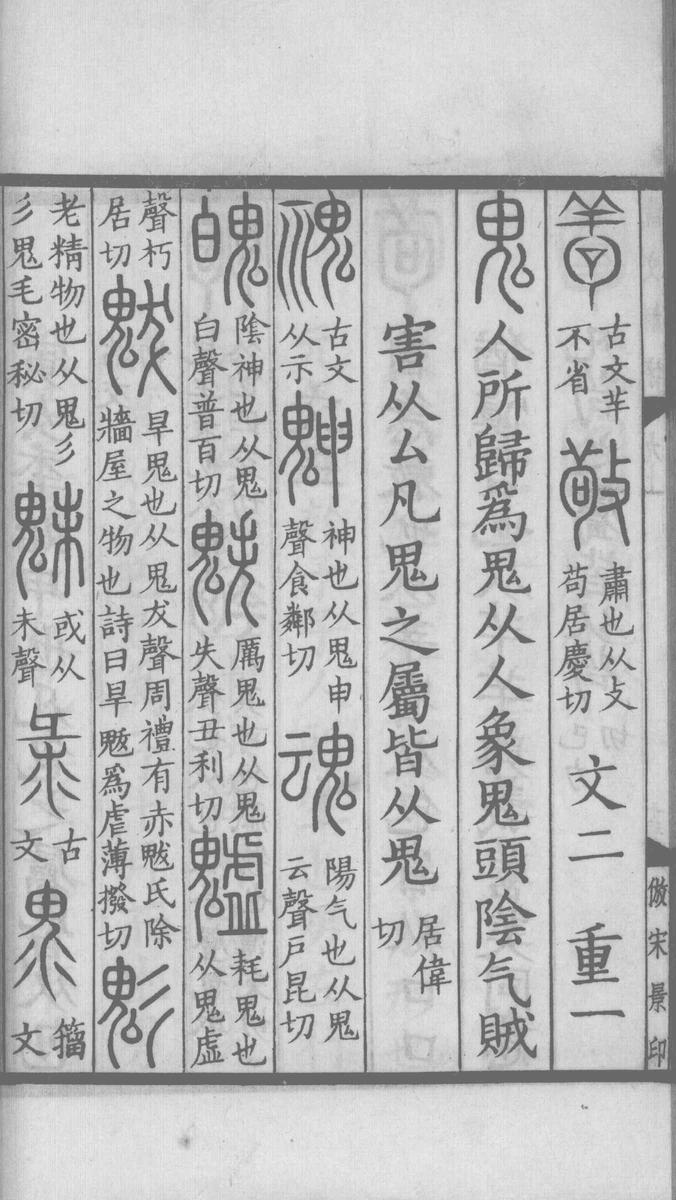 𦫳古文𦍌不省 敬肅也从攴苟居慶切 文二 重一
鬼人所歸爲鬼从人象鬼頭陰气賊
害从厶凡鬼之屬皆从鬼居偉切
古文从示 䰠神也从鬼申聲食鄰切 魂陽气也从鬼云聲戶昆切
魄陰神也从鬼白聲普百切 魅厲鬼也从鬼失聲丑利切 魖耗鬼也从鬼虛
聲朽居切 魃旱鬼也从鬼犮聲周禮有赤魃氏除牆屋之物也詩曰旱魃爲虐薄撥切 鬽
老精物也从鬼彡彡鬼毛密秘切 魅或从未聲 古文 籀文
倣宋景印